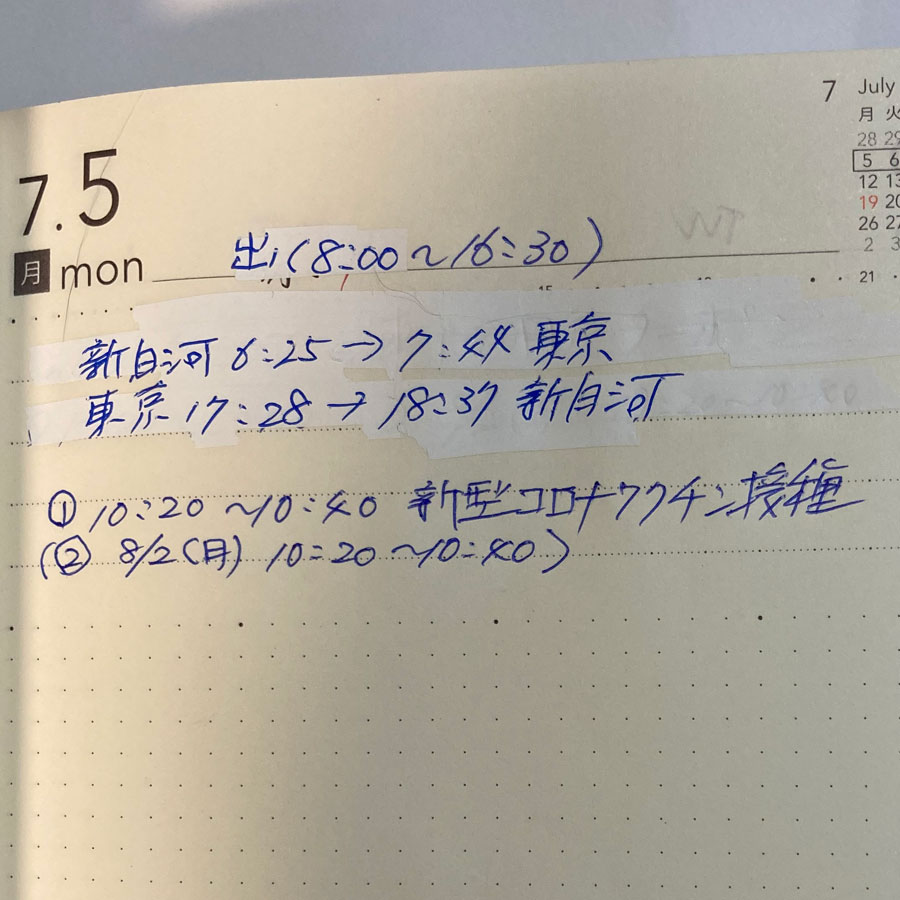 7 July
月 火
28 29
5 6
12 13
19 20
26 27
2 3
7.5
月 mon
出(8:00〜16:30)
21
新白河 6:25→7:44 東京
東京 17:28→18:37 新白河
① 10:20〜10:40 新型コロナワクチン接種
(② 8/2(月) 10:20〜10:40)